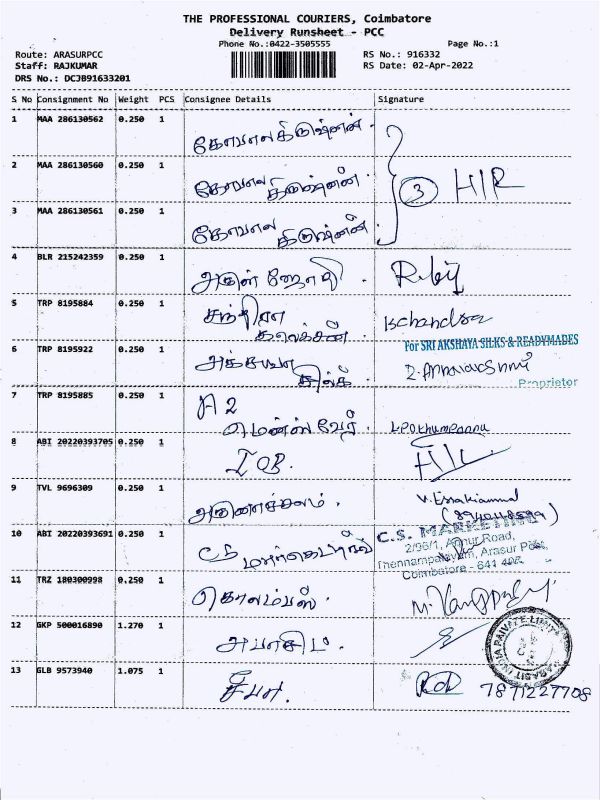 THE PROFESSIONAL COURIERS, Coimbatore
Delivery Runsheet - PCC
Phone No.:0422-3505555
Page No.:1
Route: ARASURPCC
RS No.: 916332
Staff: RAJKUMAR
RS Date: 02-Apr-2022
DRS No.: DCJB91633201
S No Consignment No Weight PCS Consignee Details Signature
1 MAA 286130562 0.250 1 கோபாலகிருஷ்ணன்.
2 MAA 286130560 0.250 1 கோபால கிருஷ்ணன். 3 HIR
3 MAA 286130561 0.250 1 கோபால கிருஷ்ணன்.
4 BLR 215242359 0.250 1 அருள் ஜோதி.
5 TRP 8195884 0.250 1 சந்திரா
For SRI AKSHAYA SILKS & READYMADES
6 TRP 8195922 0.250 1 அக்சயா சில்க்
Proprietor
7 TRP 8195885 0.250 1 A 2
மென்ஸ்வேர்.
8 ABI 20220393705 0.250 1 IOB.
9 TVL 9696309 0.250 1 அருணாச்சலம். V. Essakiammal
10 ABI 20220393691 0.250 1 CS மார்கெட்டிங் C.S. MARKETING
2/96/1, Annur Road,
Thennampalayam, Arasur Post,
Coimbatore - 641 407
11 TRZ 180300998 0.250 1 கொலம்பஸ்.
12 GKP 500016890 1.270 1
13 GLB 9573940 1.075 1 சீபா. 7871227708